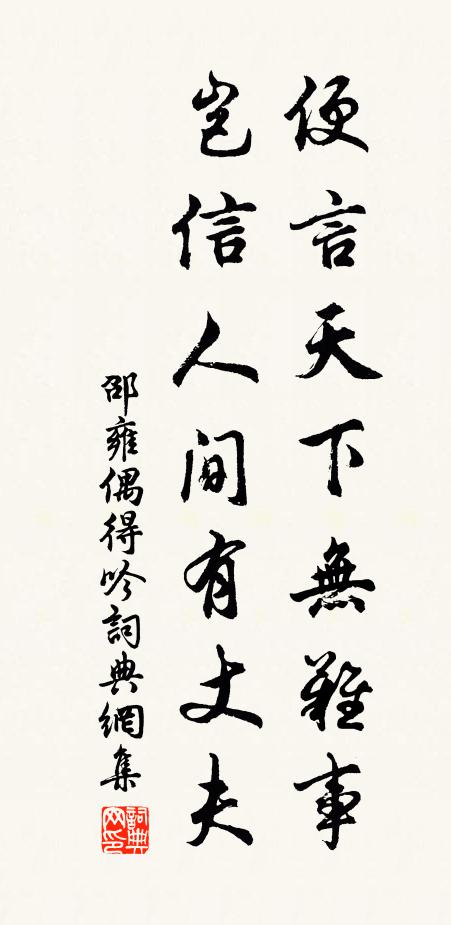 便言天下無難事
豈信人間有丈夫
邵雍偶得吟詞典網集
詞典
网印